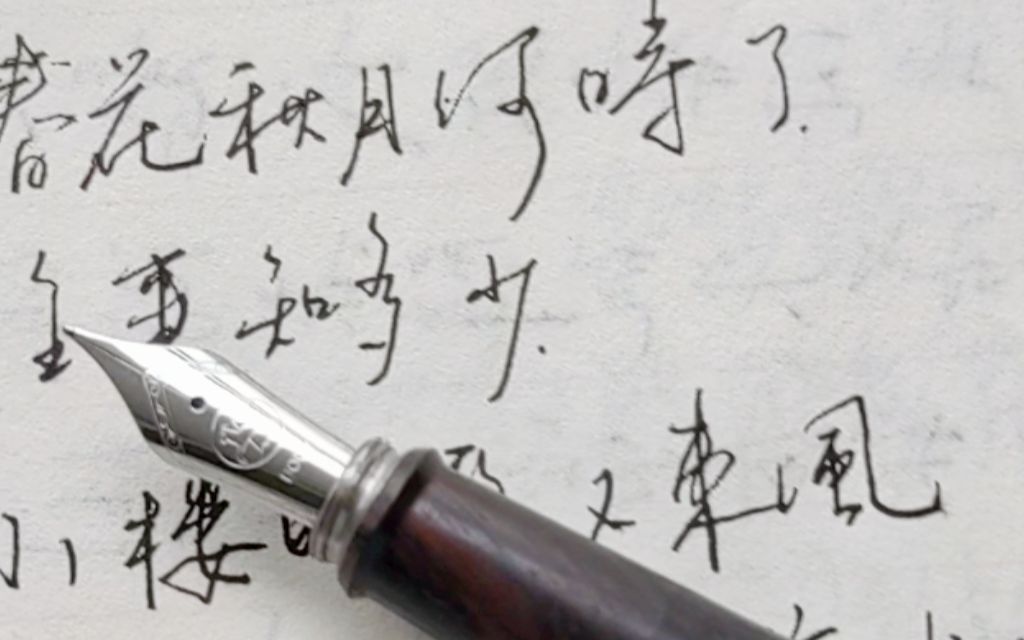 春花秋月何時了.
事知多少.
小樓又東風